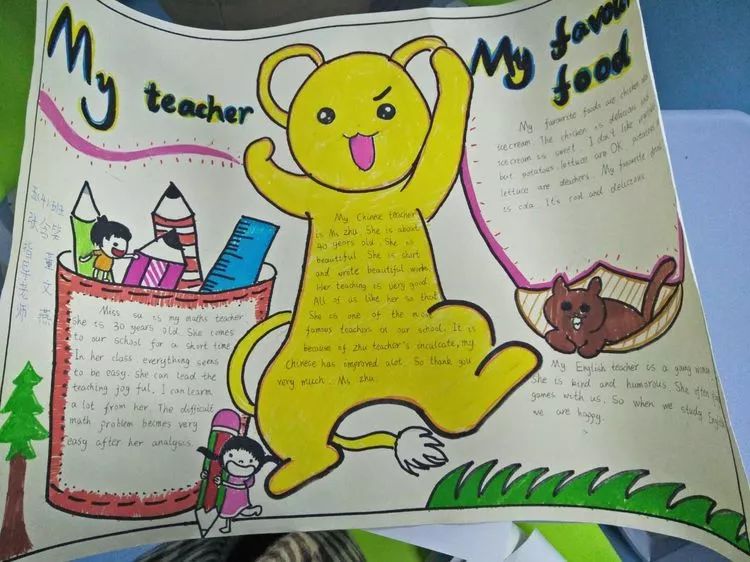 My teacher
My favou
food
My favourite foods are chicken and
icecream. The chicken is delicious and
icecream is sweet. I don't like
but potatoes lettuce are OK. potatoes
lettuce are My favourite
is cola. It's cool and delicious.
五(4)班
张
董文燕
指导老师
My Chinese teacher
is Ms zhu. She is about
40 years old. She is
beautiful. She is short
and wrote beautiful words.
Her teaching is very good.
All of us like her so that
She is one of the most
famous teachers in our school. It is
because of zhu teacher's inculcate, my
Chinese has improved alot. So thank you
very much. Ms. zhu.
Miss su is my maths teacher
She is 30 years old. She comes
to our school for a short time
In her class everything seems
to be easy. She can lead the
teaching joy ful. I can learn
a lot from her. The difficult
math problem becomes very
easy after her analyses.
My English teacher is a young woman
She is kind and humorous. She often
games with us. So when we study English
we are happy.